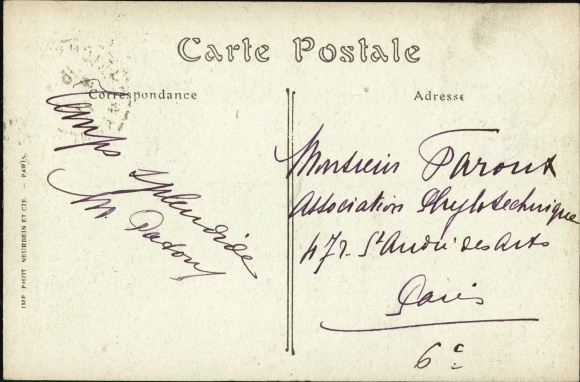 Carte Postale
Correspondance
Adresse
Temps
splendide
M.
Monsieur Paroux
Association Phylotechnique
47 r. St André des Arts
Paris
6e
IMP PHOT NEURDEIN ET CIE. — PARIS